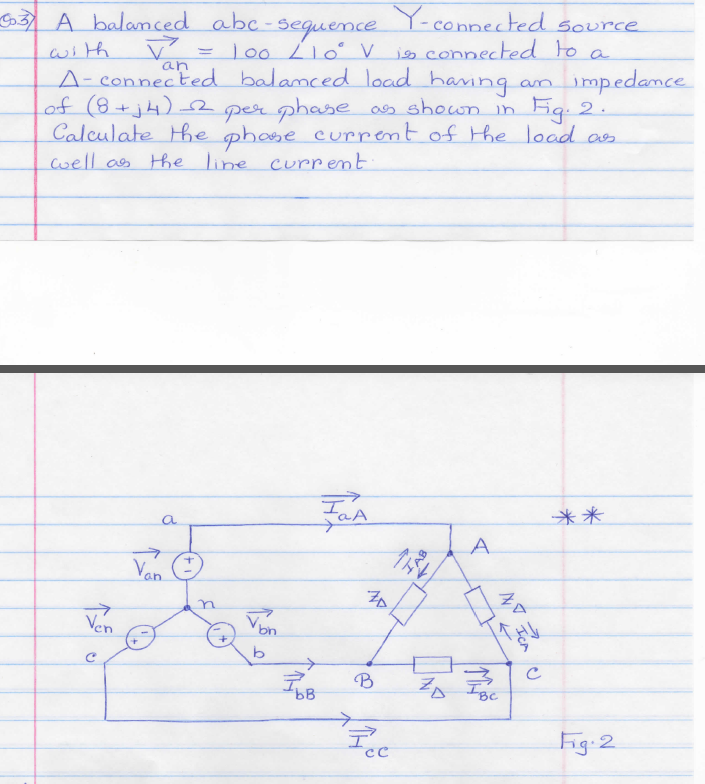 Q.3) A balanced abc-sequence Y-connected source
with V⃗an = 100 ∠10° V is connected to a
Δ-connected balanced load having an impedance
of (8+j4) Ω per phase as shown in Fig. 2.
Calculate the phase current of the load as
well as the line current.
I⃗aA
**
a
A
V⃗an
+
-
I⃗AB
ZΔ
ZΔ
n
V⃗cn
V⃗bn
+
-
-
+
I⃗CA
c
b
B
C
I⃗bB
ZΔ
I⃗BC
I⃗cC
Fig. 2